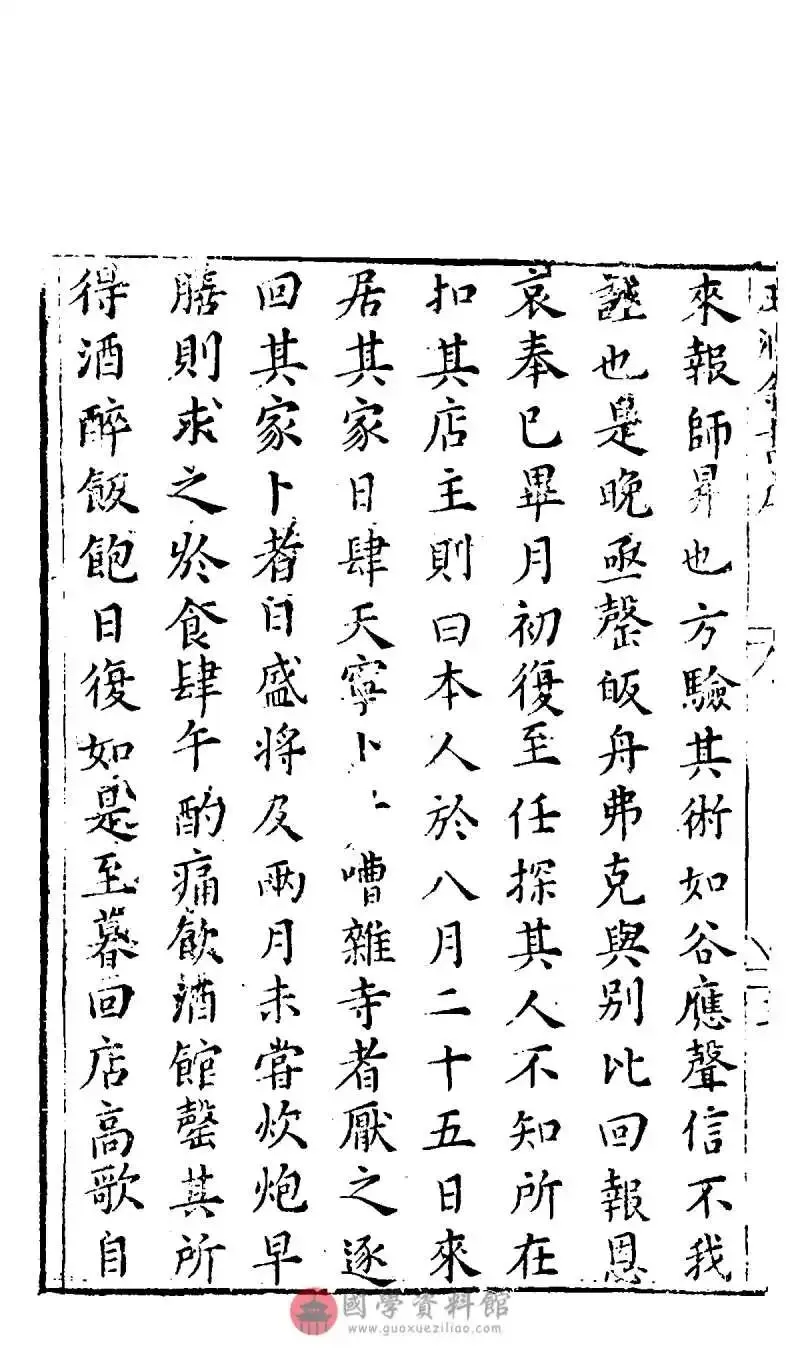 來報師昇也方驗其術如谷應聲信不我
誑也是晚亟罄皈舟弗克與別比回報恩
哀奉已畢月初復至任探其人不知所在
扣其店主則曰本人於八月二十五日來
居其家日肆天寧卜卜嘈雜寺者厭之逐
回其家卜者日盛將及兩月未嘗炊炮早
膳則求之於食肆午酌痛飲酒館罄其所
得酒醉飯飽日復如是至暮回店高歌自
國學資料館
www.guoxueziliao.com